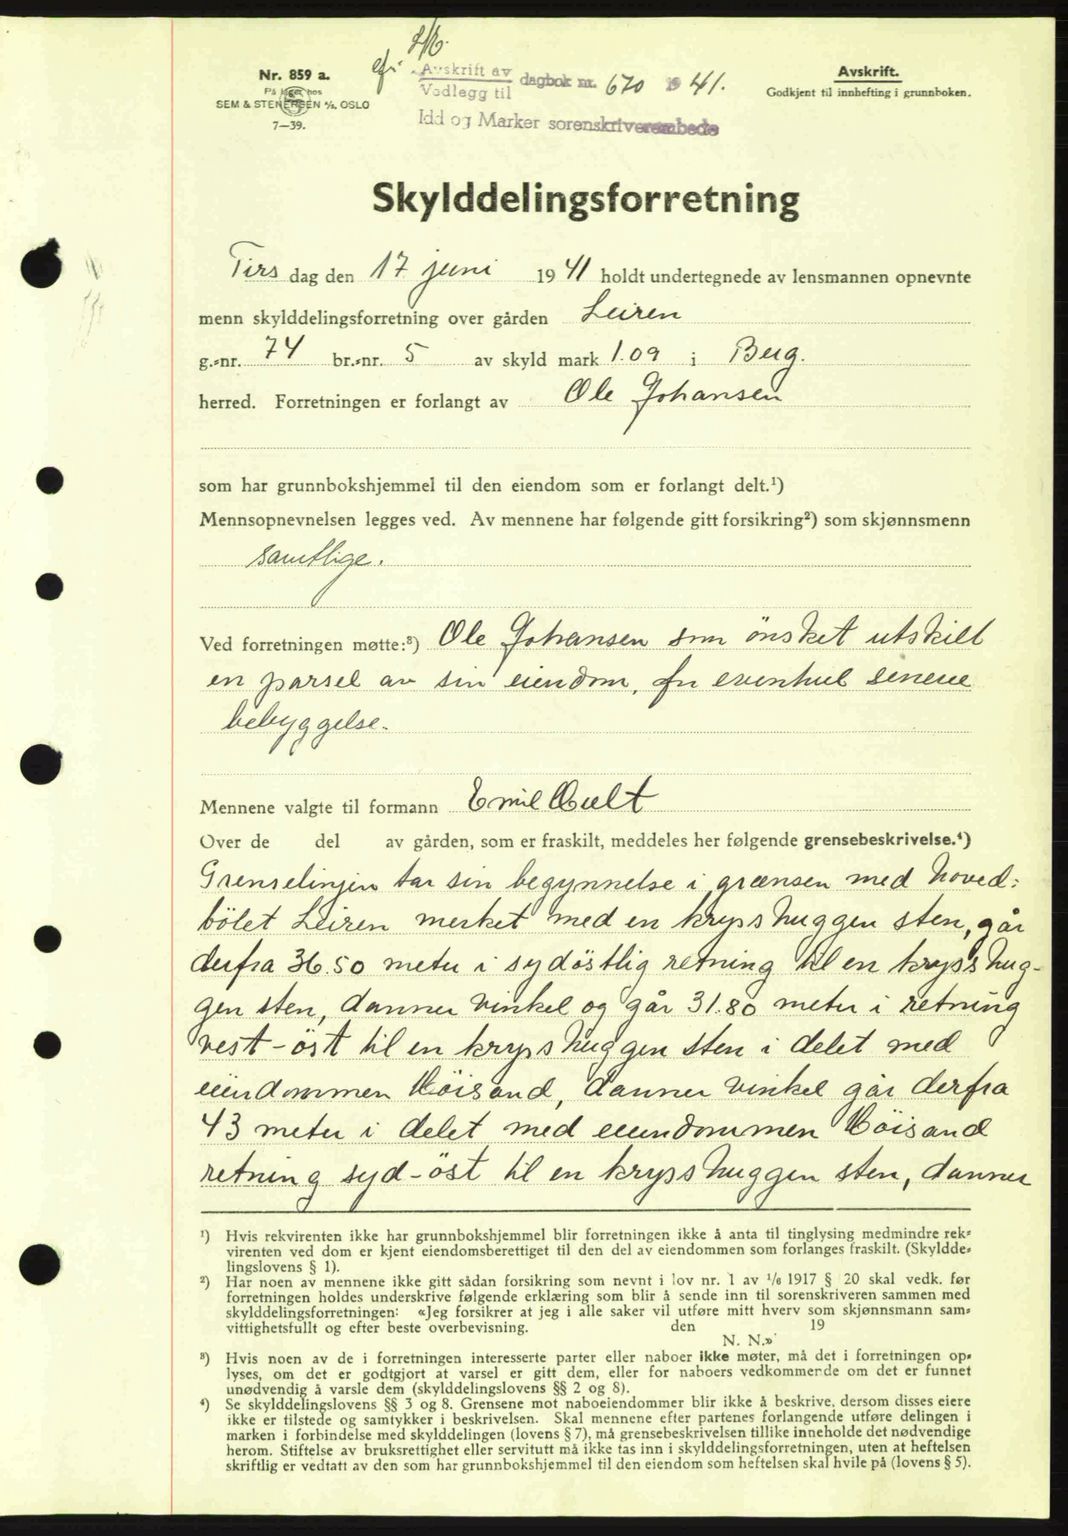 2/7.
Nr. 859 a.
På lager hos
SEM & STENERSEN A/S, OSLO
7—39.
Avskrift av
Vedlegg til dagbok nr. 620 1941.
Idd og Marker sorenskriverembede
Avskrift.
Godkjent til innhefting i grunnboken.
Skylddelingsforretning
Tirs dag den 17 juni 19 41 holdt undertegnede av lensmannen opnevnte
menn skylddelingsforretning over gården Leiren
g.-nr. 74 br.-nr. 5 av skyld mark 1.09 i Berg.
herred. Forretningen er forlangt av Ole Johansen
som har grunnbokshjemmel til den eiendom som er forlangt delt.¹)
Mennsopnevnelsen legges ved. Av mennene har følgende gitt forsikring²) som skjønnsmenn
samtlige.
Ved forretningen møtte:³) Ole Johansen som önsket utskilt
en parsel av sin eiendom, for eventuel senere
bebyggelse.
Mennene valgte til formann Emil Hult
Over de del av gården, som er fraskilt, meddeles her følgende grensebeskrivelse.⁴)
Grenselinjen tar sin begynnelse i grænsen med hoved-
bölet Leiren merket med en kryss huggen sten, går
derfra 36.50 meter i sydöstlig retning til en kryss hug-
gen sten, danner vinkel og går 31.80 meter i retning
vest-öst til en kryss huggen sten i delet med
eiendommen Höisand, danner vinkel går derfra
43 meter i delet med eiendommen Höisand
retning syd-öst til en kryss huggen sten, danner
¹) Hvis rekvirenten ikke har grunnbokshjemmel blir forretningen ikke å anta til tinglysing medmindre rek-
virenten ved dom er kjent eiendomsberettiget til den del av eiendommen som forlanges fraskilt. (Skyldde-
lingslovens § 1).
²) Har noen av mennene ikke gitt sådan forsikring som nevnt i lov nr. 1 av 1/6 1917 § 20 skal vedk. før
forretningen holdes underskrive følgende erklæring som blir å sende inn til sorenskriveren sammen med
skylddelingsforretningen: «Jeg forsikrer at jeg i alle saker vil utføre mitt hverv som skjønnsmann sam-
vittighetsfullt og efter beste overbevisning. den 19
N. N.»
³) Hvis noen av de i forretningen interesserte parter eller naboer ikke møter, må det i forretningen op-
lyses, om det er godtgjort at varsel er gitt dem, eller for naboers vedkommende om det er funnet
unødvendig å varsle dem (skylddelingslovens §§ 2 og 8).
⁴) Se skylddelingslovens §§ 3 og 8. Grensene mot naboeiendommer blir ikke å beskrive, dersom disses eiere
ikke er tilstede og samtykker i beskrivelsen. Skal mennene efter partenes forlangende utføre delingen i
marken i forbindelse med skylddelingen (lovens § 7), må grensebeskrivelsen tillike inneholde det nødvendige
herom. Stiftelse av bruksrettighet eller servitutt må ikke tas inn i skylddelingsforretningen, uten at heftelsen
skriftlig er vedtatt av den som har grunnbokshjemmel til den eiendom som heftelsen skal hvile på (lovens § 5).